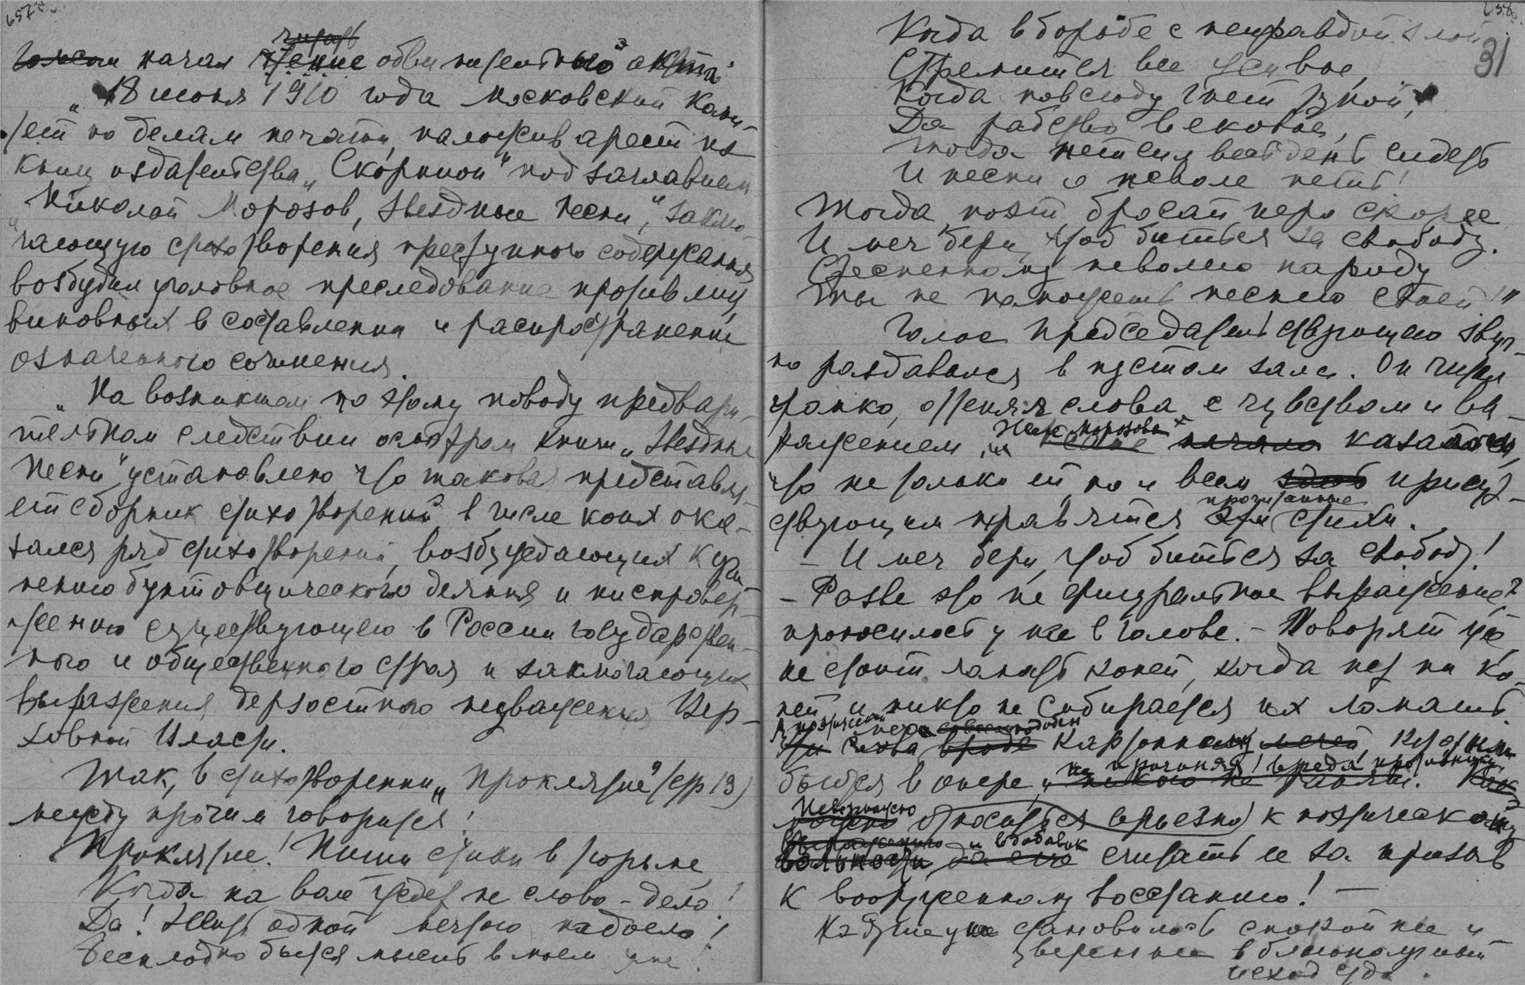 657
начал чтение обвинительного акта
„18 июня 1910 года Московский Коми-
тет по делам печати, наложив арест на
книгу издательства „Скорпион“ под заглавием
„Николай Морозов, Звездные Песни“, заклю-
чающую стихотворения преступного содержания
возбудил уголовное преследование против лиц
виновных в составлении и распространении
означенного сочинения.
„На возникшем по этому поводу предвари-
тельном следствии осмотром книги „Звездные
Песни“ установлено что таковая представля-
ет сборник стихотворений, в числе коих ока-
зался ряд стихотворений, возбуждающих к учи-
нению бунтовщического деяния и ниспровер-
жению существующего в России государствен-
ного и общественного строя и заключающих
выражения дерзостного неуважения Вер-
ховной Власти.
Так, в стихотворении „Проклятие“ (стр 13)
между прочим говорится!
Проклятие! Пиши стихи в тюрьме,
Когда на воле ждет не слово – дело!
Да! Жить одной мечтою надоело!
Бесплодно бьется мысль в моем уме!
658
31
Когда в борьбе с неправдой злой
Стремится все живое,
Когда повсюду гнет тупой
Да рабство вековое,
Тогда нет сил весь день сидеть
И песни о неволе петь!
Тогда, поэт, бросай перо скорее
И меч бери, чтоб биться за свободу.
Стесненному неволею народу
Ты не поможешь песнею своей!“
Голос председательствующего звуч-
но раздавался в пустом зале. Он читал
громко, оттеняя слова, с чувством и вы-
ражением, и Н.А. Морозову казалось,
что не только ей но и всем присут-
ствующим нравятся прочитанные стихи.
– И меч бери, чтоб биться за свободу!
– Разве это не фигуральное выражение?
проносилось у нее в голове. – Говорят что
не стоит ломать копей, когда нет ни ко-
пей, и никто не собирается их ломать.
А поэтический меч подобен картонному, которым
бьются в опере, не причиняя вреда противнику.
Невозможно относиться серьезно к поэтическому
выражению и вдобавок считать ее за призыв
к вооруженному восстанию! —
На душе у нее становилось спокойнее и
увереннее в благополучный
исход суда.